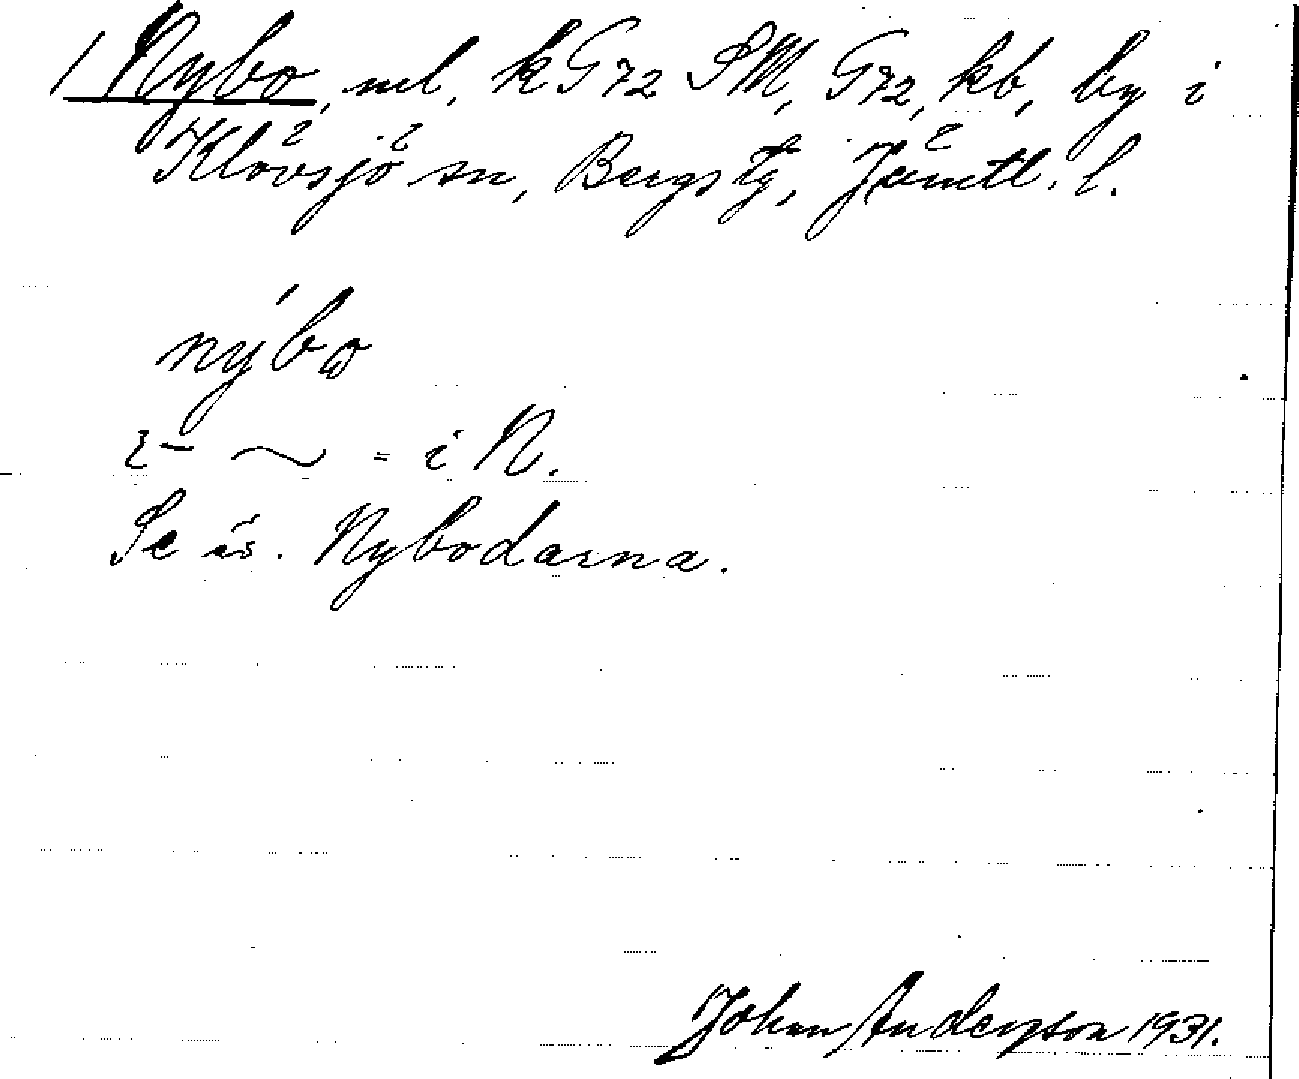 1 Nybo, ml, k G72 SM, G72, kb, by i
Klövsjö sn, Bergs tg, Jämtl. l.
nýbω
~ = i N.
Se äs. Nybodarna.
Johan Anderzson 1931.